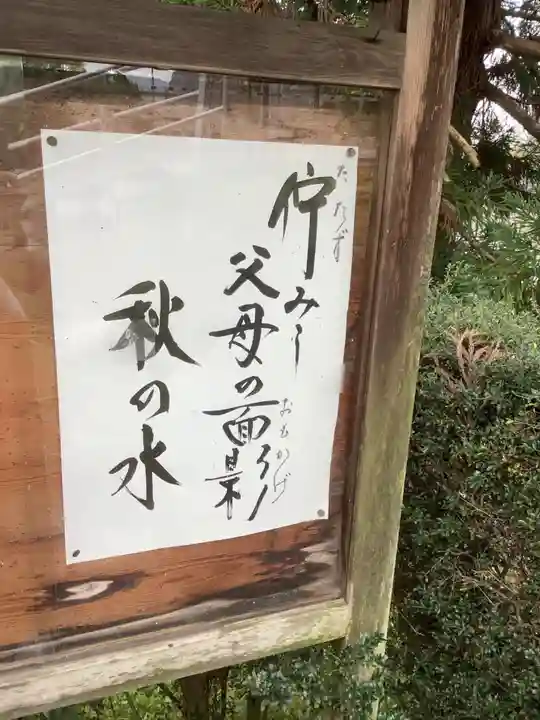 佇みし
たたず
父母の面影
おもかげ
秋の水